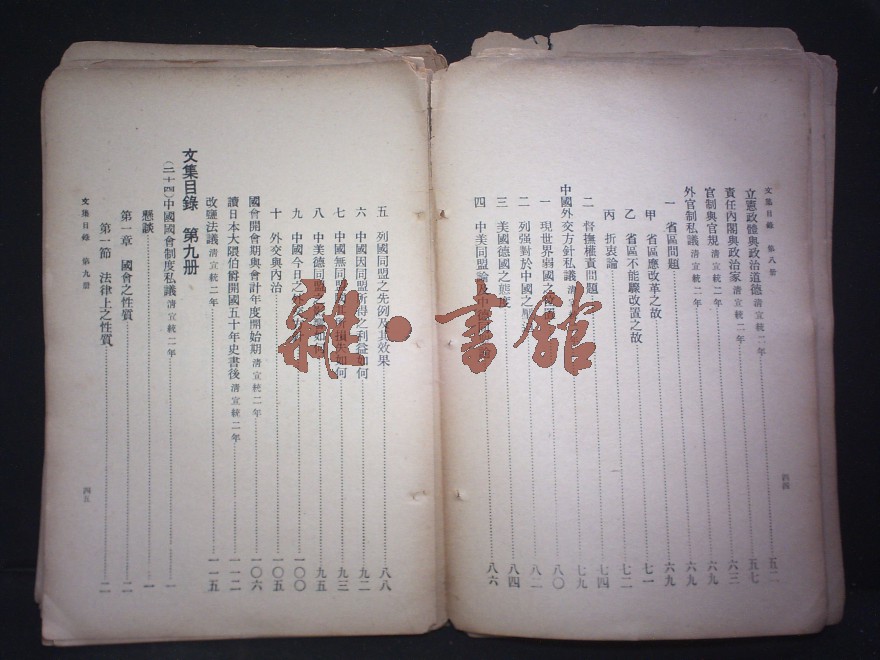 文集目錄 第八册
立憲政體與政治道德 清宣統二年 五二
責任內閣與政治家 清宣統二年 五七
官制與官規 清宣統二年 六三
外官制私議 清宣統二年 六九
一 省區問題 六九
甲 省區應改革之故 七一
乙 省區不能驟改置之故 七二
丙 折衷論 七四
二 督撫權責問題 七九
中國外交方針私議 清宣 八〇
一 現世界弱國之
二 列强對於中國之 八二
三 美國德國之態度 八四
四 中美同盟論 中德 八六
四四
五 列國同盟之先例及其效果 八八
六 中國因同盟所得之利益如何 九二
七 中國無同盟國 所損失如何 九三
八 中美德同盟 如何 九五
九 中國今日之外 一〇〇
十 外交與內治 一〇五
國會開會期與會計年度開始期 清宣統二年 一〇六
讀日本大隈伯爵開國五十年史書後 清宣統二年 一一二
改鹽法議 清宣統二年 一一五
文集目錄 第九册
(二十四)中國國會制度私議 清宣統二年 一
懸談 一
第一章 國會之性質 二
第一節 法律上之性質 二
文集目錄 第九册
四五
雜·書館